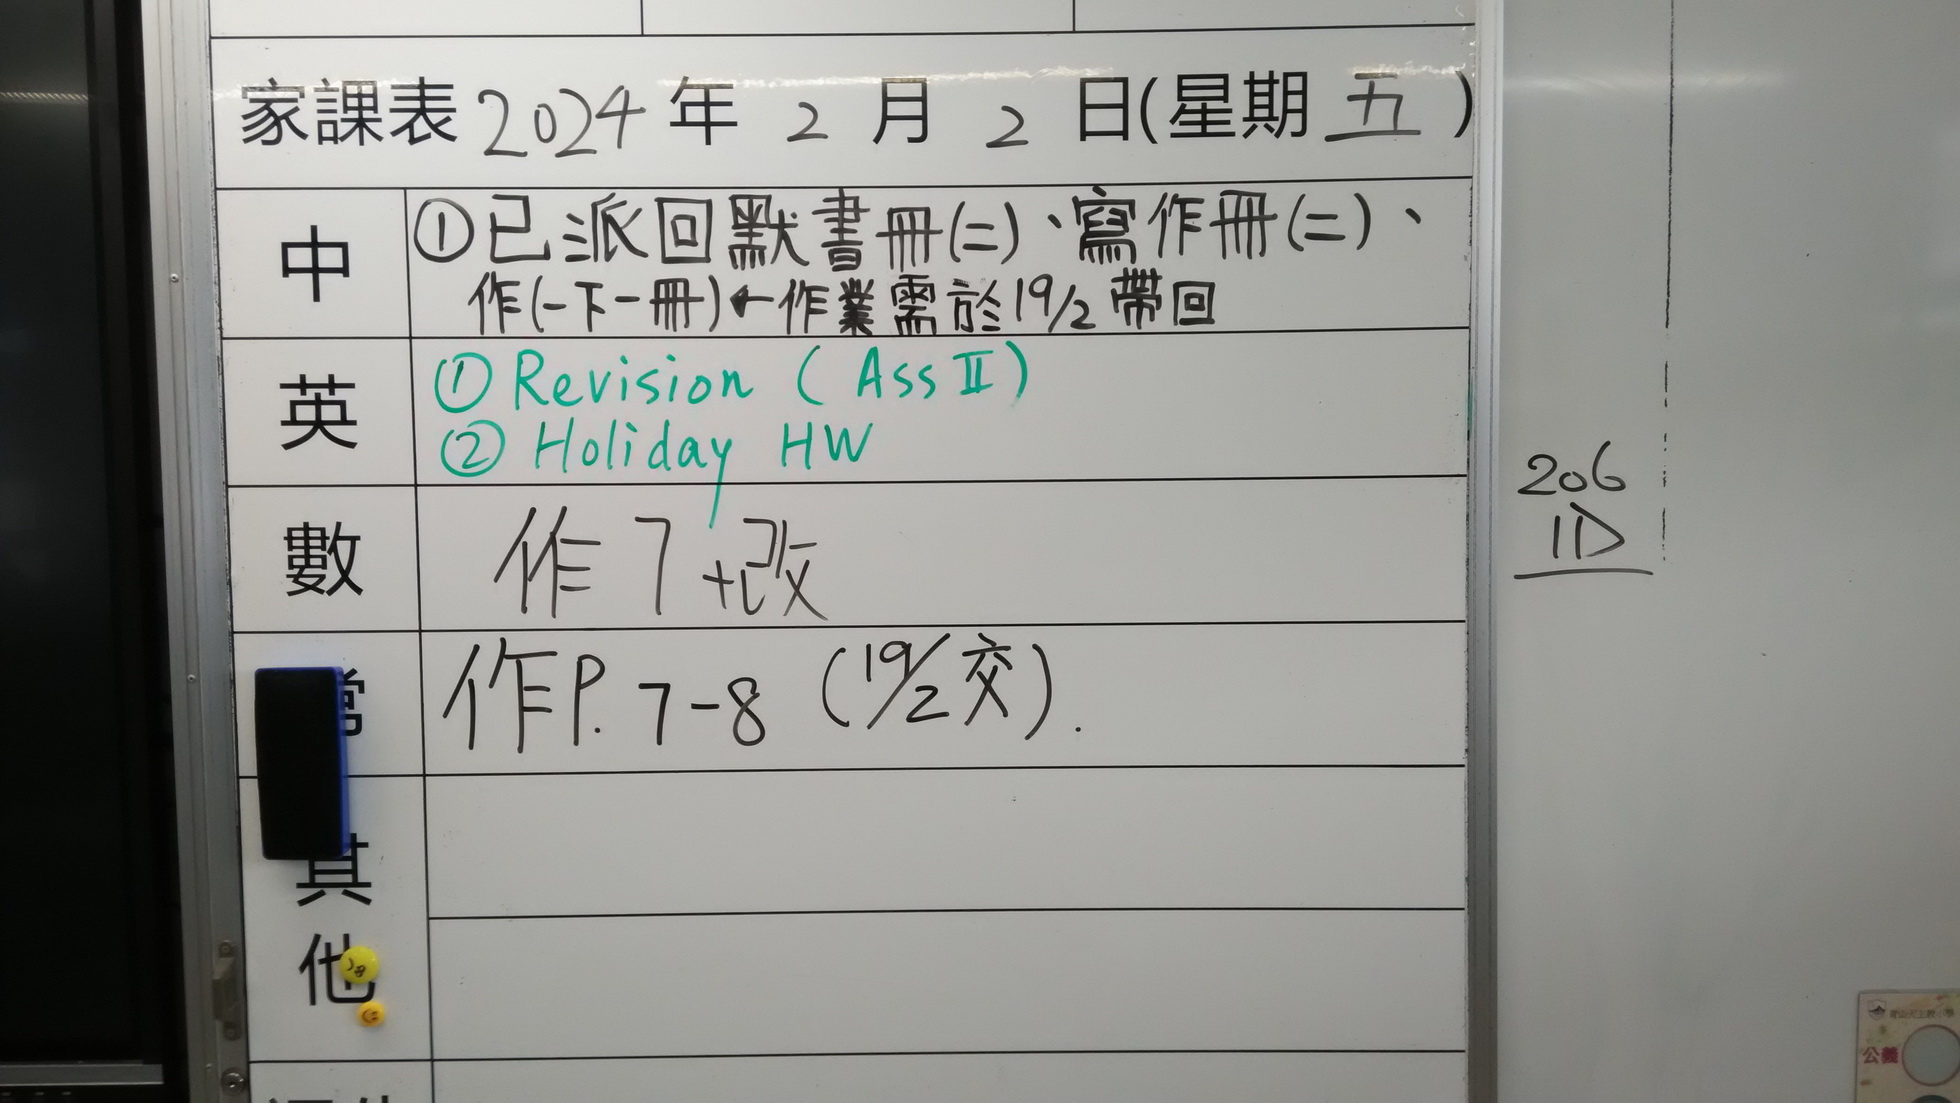 家課表 2024 年 2 月 2 日(星期 五 )
中
①已派回默書冊(二)、寫作冊(二)、
作(一下一冊)←作業需於19/2 帶回
英
① Revision ( Ass II )
② Holiday HW
數
作 7 +改
常
作P. 7-8 (19/2 交).
其
他
206
1D
公義